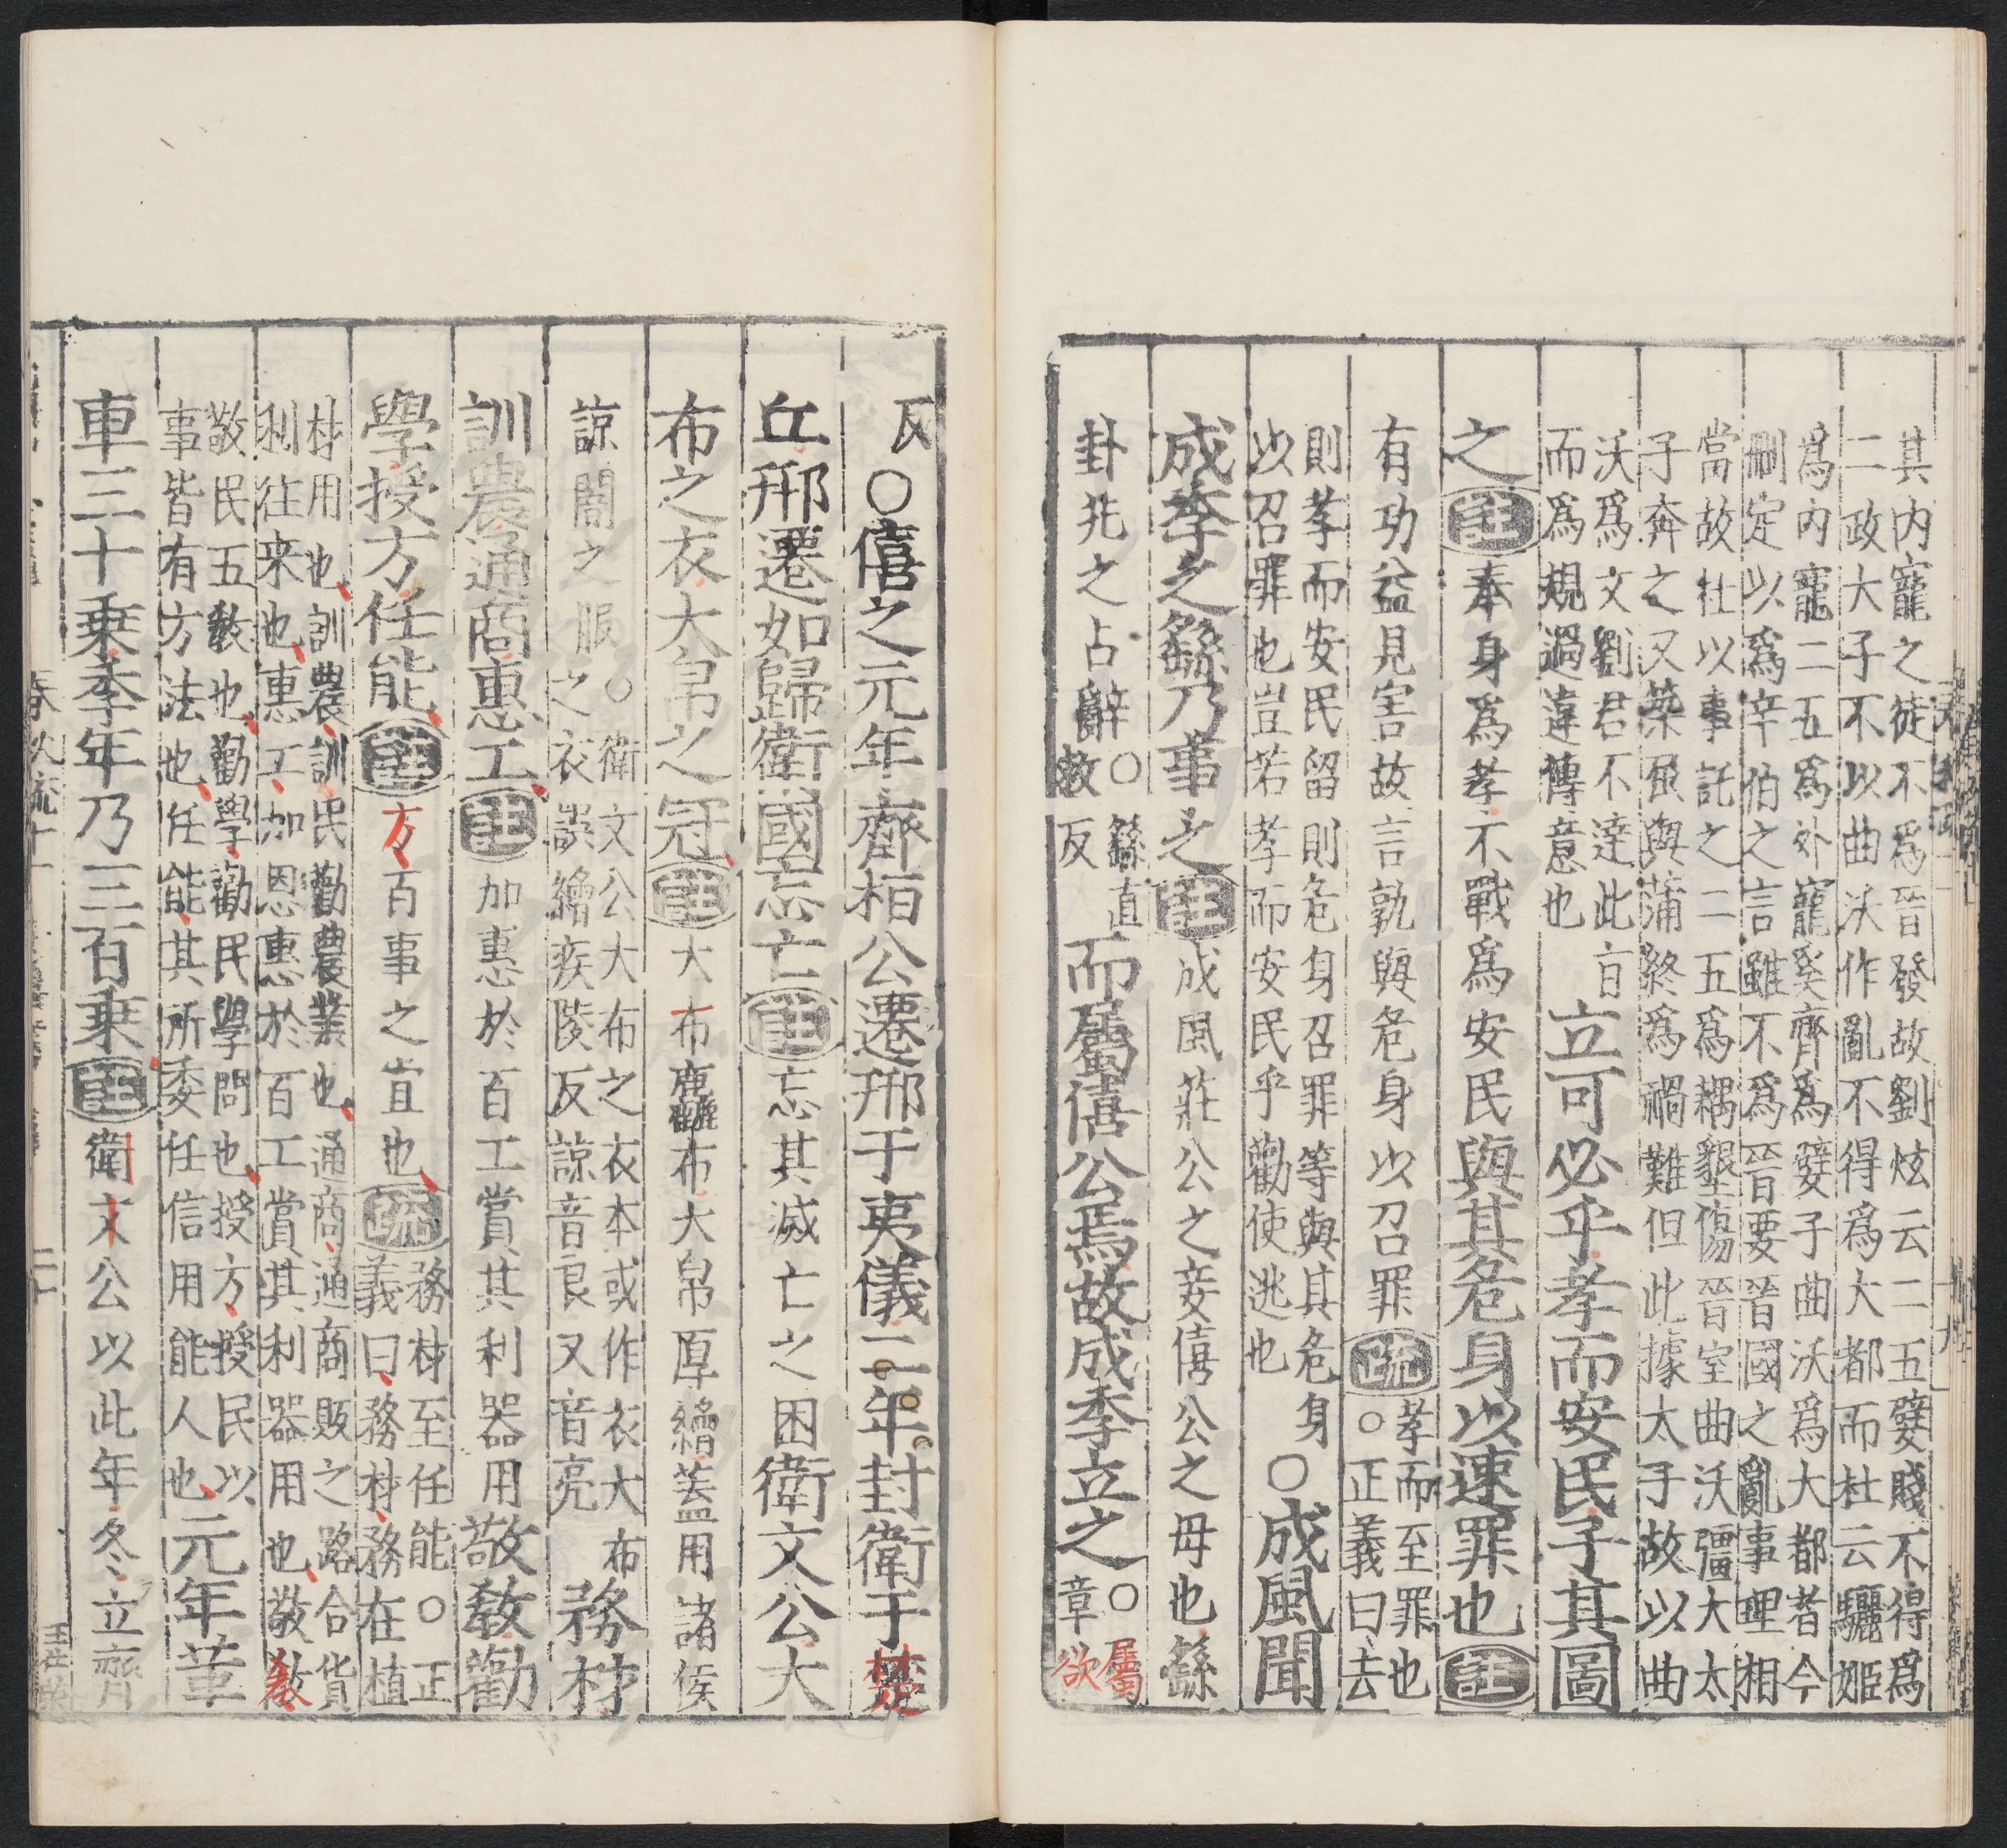 其内寵之徒不爲晉發故劉炫云二五嬖賤不得爲
二政大子不以曲沃作亂不得爲大都而杜云驪姬
爲内寵二五爲外寵奚齊爲嬖子曲沃爲大都者今
刪定以爲辛伯之言雖不爲晉要晉國之亂事理相
當故杜以事託之二五爲耦墾傷晉室曲沃彊大太
子奔之又築屈與蒲終爲禍難但此據太子故以曲
沃爲文劉君不達此旨
而爲規過違傳意也
立可必乎孝而安民子其圖
之註奉身爲孝不戰爲安民與其危身以速罪也註
有功益見害故言孰與危身以召罪疏孝而至罪也
○正義曰去
則孝而安民留則危身召罪等與其危身
以召罪也豈若孝而安民乎勸使逃也
○成風聞
成季之繇乃事之註成風莊公之妾僖公之母也繇
卦兆之占辭○繇直
救反
而屬僖公焉故成季立之○屬
章欲
反○僖之元年齊桓公遷邢于夷儀二年封衛于楚
丘邢遷如歸衛國忘亡註忘其滅亡之困衛文公大
布之衣大帛之冠註大布麤布大帛厚繒蓋用諸侯
諒闇之服○衛文公大布之衣本或作衣大布
之衣誤繒疾陵反諒音良又音亮
務材
訓農通商惠工註加惠於百工賞其利器用敬教勸
學授方任能註方百事之宜也疏務材至任能○正
義曰務材務在植
材用也訓農訓民勸農業也通商通商販之路合貨
利往来也惠工加恩惠於百工賞其利器用也敬教
敬民五教也勸學勸民學問也授方授民以
事皆有方法也任能其所委任信用能人也
元年革
車三十乗季年乃三百乗註衛文公以此年冬立齊